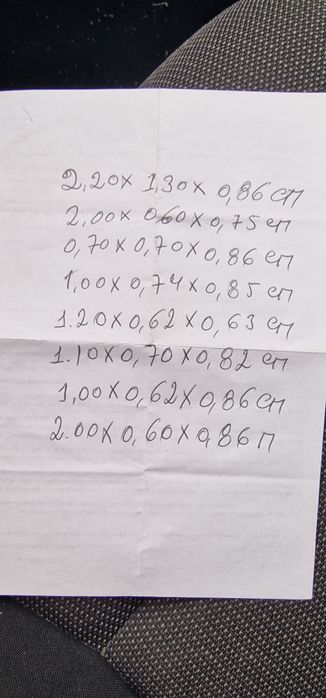 2,20x 1,30x 0,86 сп
2.00x 0,60x0,75 сп
0,70x0,70x0,86 сп
1,00x0,74x0,85 сп
1.20x0,62x0,63 сп
1.10x0,70x0,82 сп
1,00x0,62x0,86 сп
2.00x0,60x0,86 п